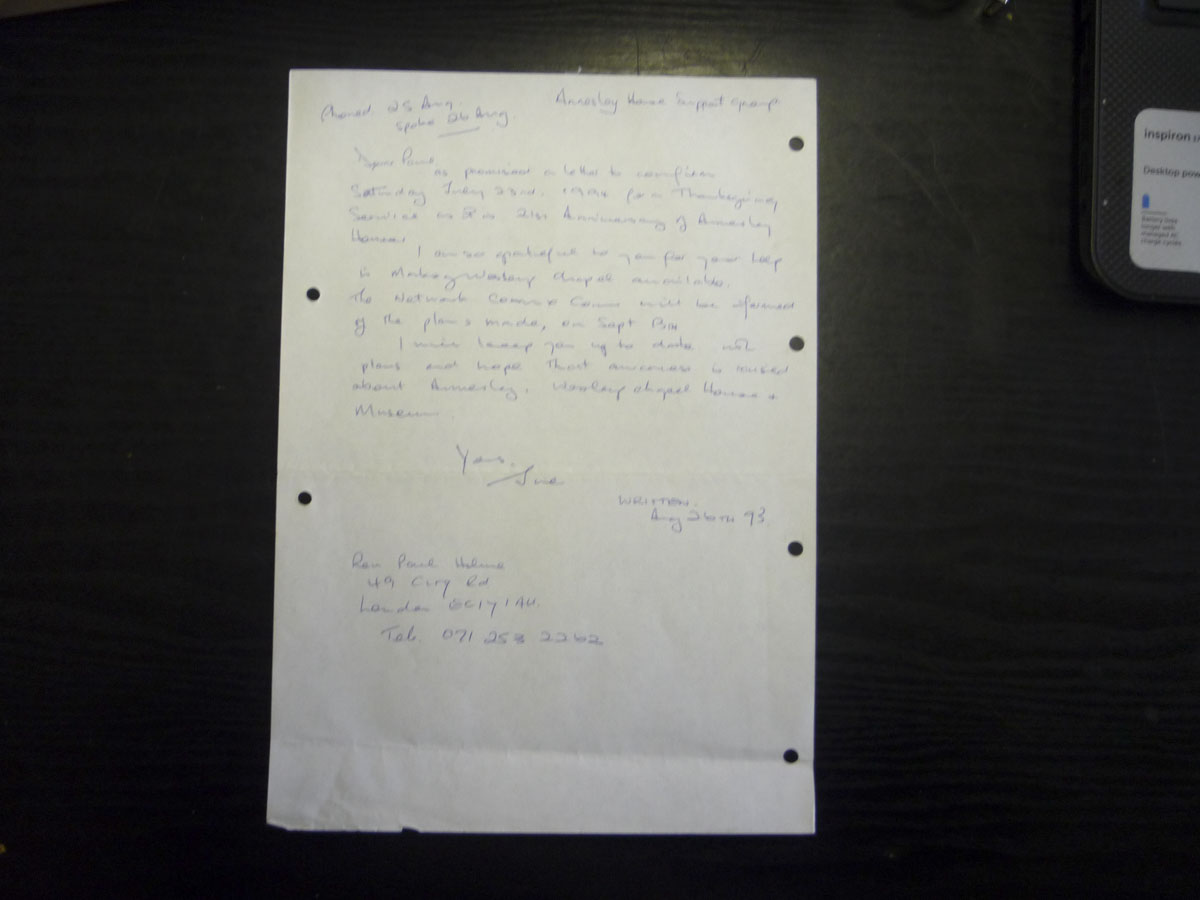 Phoned 25 Aug.
spoke 26 Aug.
Annesley House Support group
Dear Paul
as promised a letter to confirm
Saturday July 23rd. 1994 for a Thanksgiving
Service as 21st Anniversary of Annesley
House.
I am so grateful to you for your help
in Making Wesley Chapel available.
The Network Comm will be informed
of the plans made, on Sept
I will keep you up to date with
plans and hope that awareness is raised
about Annesley, Wesley chapel House +
Museum.
Yours,
June
WRITTEN.
Aug 26TH 93.
Rev Paul Hulme
49 City Rd
London EC1Y 1AU.
Tel. 071 253 2262
inspiron
Desktop pow
Battery lasts
longer with
managed AC
charge cycles